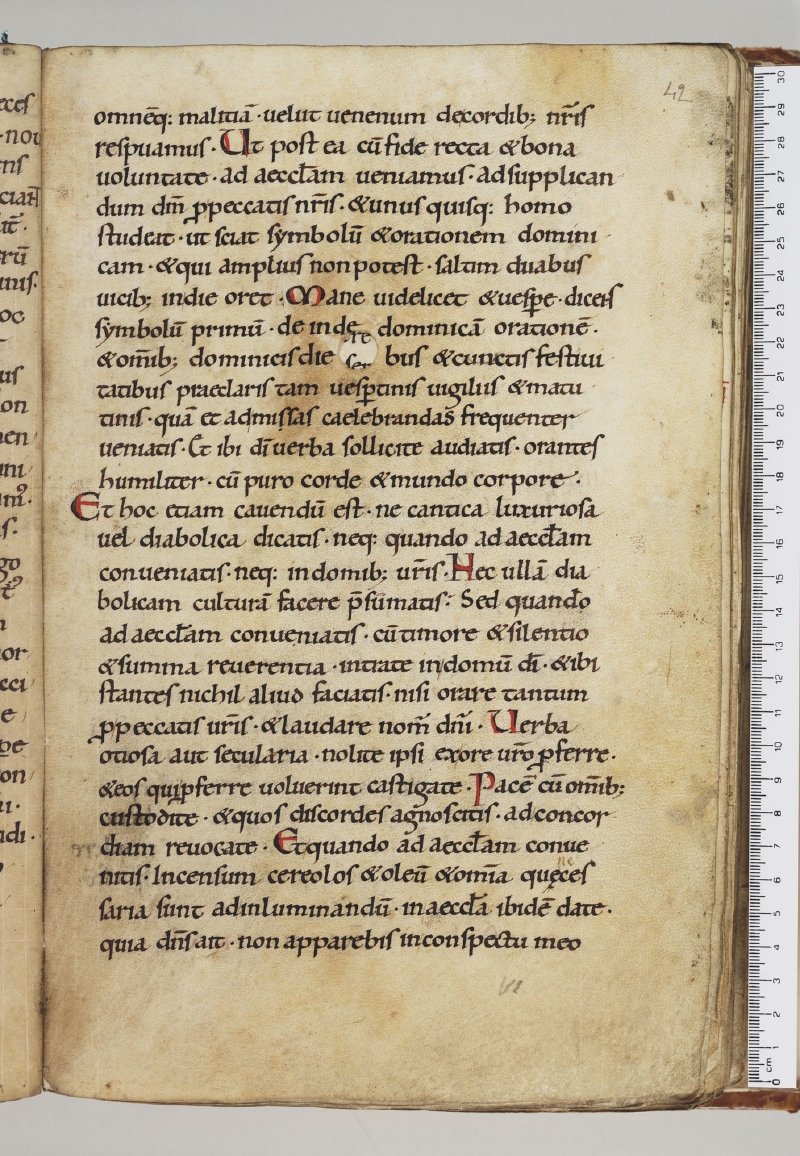 42
omnēq: malitiā · uelut uenenum decordib; nr̄is
respuamus · Ut post ea cū fide recta &bona
uoluntate · ad aeccłam ueniamus · adsupplican
dum dm̄ ꝓpeccatis nr̄is · &unus quisq: homo
studeat · ut sciat symbolū &orationem domini
cam · &qui amplius non potest · saltim duabus
uicib; indie oret · Mane uidelicet &uesꝑe · dicens
symbolū primū · de inde dominicā orationē ·
&om̄ib; dominicis die bus &cunctis festiui
tatibus praeclaris tam uesꝑtinis uigiliis &matu
tinis · quā et admissas caelebrandas frequenter
ueniatis · Et ibi dī uerba sollicite audiatis · orantes
humiliter · cū puro corde &mundo corpore ·
Et hoc etiam cauendū est · ne cantica luxuriosa
uel diabolica dicatis · neq: quando ad aeccłam
conueniatis · neq: indomib; ur̄is · Nec ullā dia
bolicam culturā facere p̄sumatis · Sed quando
ad aeccłam conueniatis · cū timore &silentio
&summa reuerentia · intrate in domū dī · &ibi
stantes nichil aliud faciatis · nisi orare tantum
ꝓpeccatis ur̄is · &laudare nom̄ dn̄i · Uerba
otiosa aut secularia · nolite ipsi exore ur̄o ꝓferre ·
&eos qui ꝓferre uoluerint castigate · Pacē cū om̄ib;
custodite · &quos discordes agnoscitis · ad concor
diam reuocate · Et quando ad aeccłam conue
nitis · Incensum cereolos &oleū &om̄ia quęces
ne
saria sunt adinluminandū · inaeccła ibidē date ·
quia dn̄s ait · non apparebis inconspectu meo